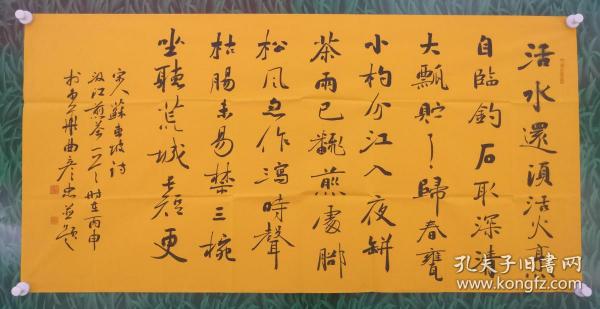 活水還須活火烹
自臨釣石取深清
大瓢貯月歸春甕
小杓分江入夜缾
茶雨已飜煎處腳
松風忽作瀉時聲
枯腸未易禁三椀
坐聽荒城長短更
宋人蘇東坡詩
汲江煎茶一首時在丙申
曲彥忠並題
孔夫子旧书网
www.kongfz.com